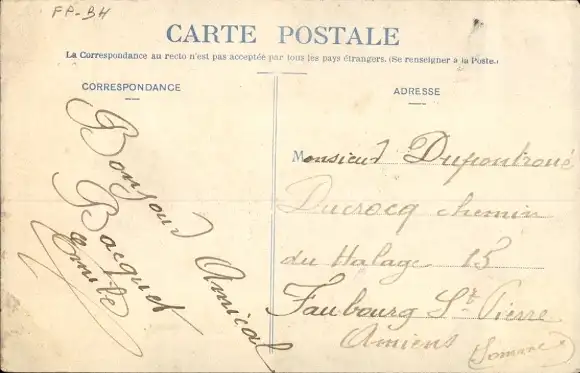 FP-BH
CARTE POSTALE
La Correspondance au recto n'est pas acceptée par tous les pays étrangers. (Se renseigner à la Poste.)
CORRESPONDANCE
Bonjour Amical
Bacquet
Emile
ADRESSE
Monsieur Dupontroué
Ducrocq chemin
du Halage 15
Faubourg St Pierre
Amiens (Somme)